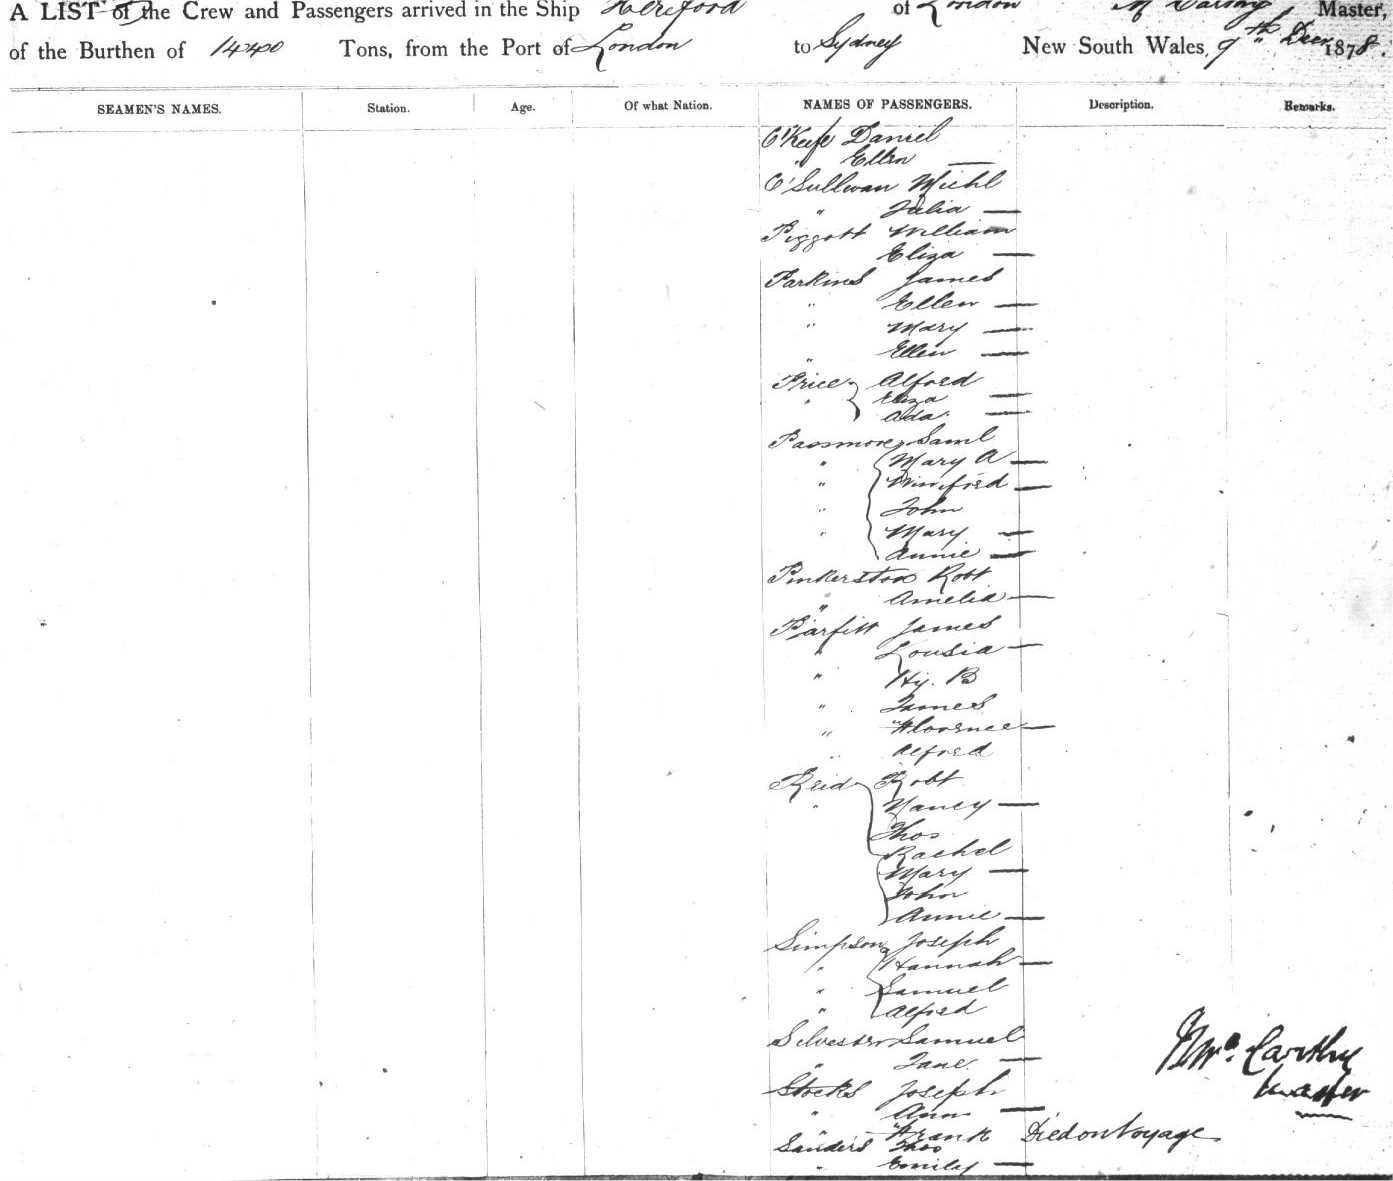 A LIST of the Crew and Passengers arrived in the Ship Hereford of London McCarthy Master,
of the Burthen of 1440 Tons, from the Port of London to Sydney New South Wales, 9th Decr 1878.
SEAMEN'S NAMES. Station. Age. Of what Nation. NAMES OF PASSENGERS. Description. Remarks.
O'Keefe Daniel
" Ellen —
O'Sullivan Michl
" Julia —
Piggott William
Eliza —
Parkins James
" Ellen —
" Mary —
" Ellen —
Price Alford
" Eliza —
Ada —
Passmore Saml
" Mary A —
" Winiford —
" John
" Mary —
Annie —
Pinkerston Robt
" Amelia —
Parfitt James
" Lousia —
" Hy. B
" James
" Florence —
" Alfred
Reid Robt
" Nancy —
Thos
Rachel
Mary —
John
Annie —
Simpson Joseph
" Hannah —
" Samuel
" Alford
Silvester Samuel
" Jane —
Stocks Joseph
" Ann —
" Frank Died on Voyage
Sanders Thos
" Emily —
McCarthy
Master